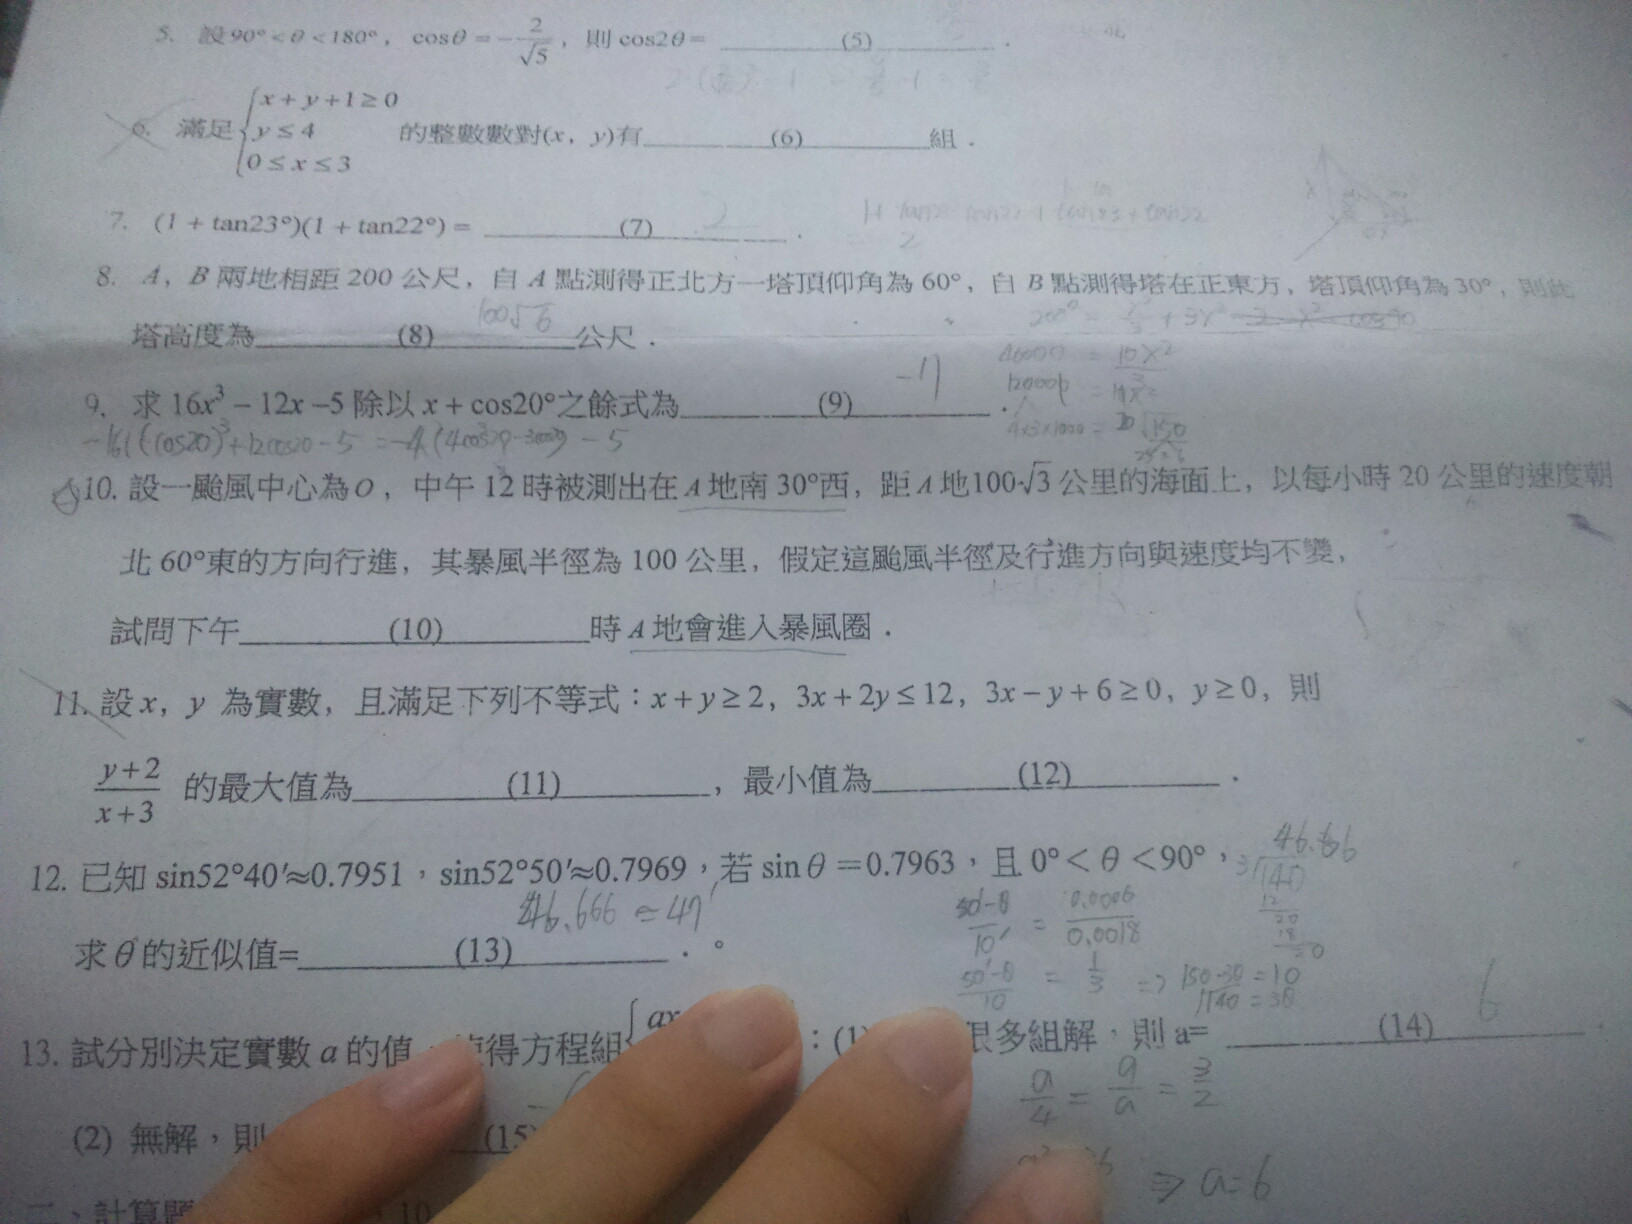 5. 設90°<θ<180°，cosθ=-2/√5，則cos2θ= (5) .
x+y+1≥0
6. 滿足 y≤4 的整數數對(x，y)有 (6) 組．
0≤x≤3
7. (1+tan23°)(1+tan22°)= (7) . 2
8. A，B兩地相距200公尺，自A點測得正北方一塔頂仰角為60°，自B點測得塔在正東方，塔頂仰角為30°，則此
100√6
塔高度為 (8) 公尺．
-17
9. 求16x³-12x-5除以x+cos20°之餘式為 (9) .
10. 設一颱風中心為O，中午12時被測出在A地南30°西，距A地100√3公里的海面上，以每小時20公里的速度朝
北60°東的方向行進，其暴風半徑為100公里，假定這颱風半徑及行進方向與速度均不變，
試問下午 (10) 時A地會進入暴風圈．
11. 設x，y為實數，且滿足下列不等式：x+y≥2，3x+2y≤12，3x-y+6≥0，y≥0，則
y+2/x+3 的最大值為 (11) ，最小值為 (12) .
46.666
3√140
12. 已知sin52°40'≈0.7951，sin52°50'≈0.7969，若sinθ=0.7963，且0°<θ<90°，
46.666≈47'
50'-θ/10' = 0.0006/0.0018
求θ的近似值= (13) . °
50'-θ/10 = 1/3 => 150-3θ=10
140=3θ
6
13. 試分別決定實數a的值，使得方程組 ax ：(1) 很多組解，則a= (14) .
a/4 = 9/a = 3/2
(2) 無解，則 (15)
=> a=6
二、計算題 10